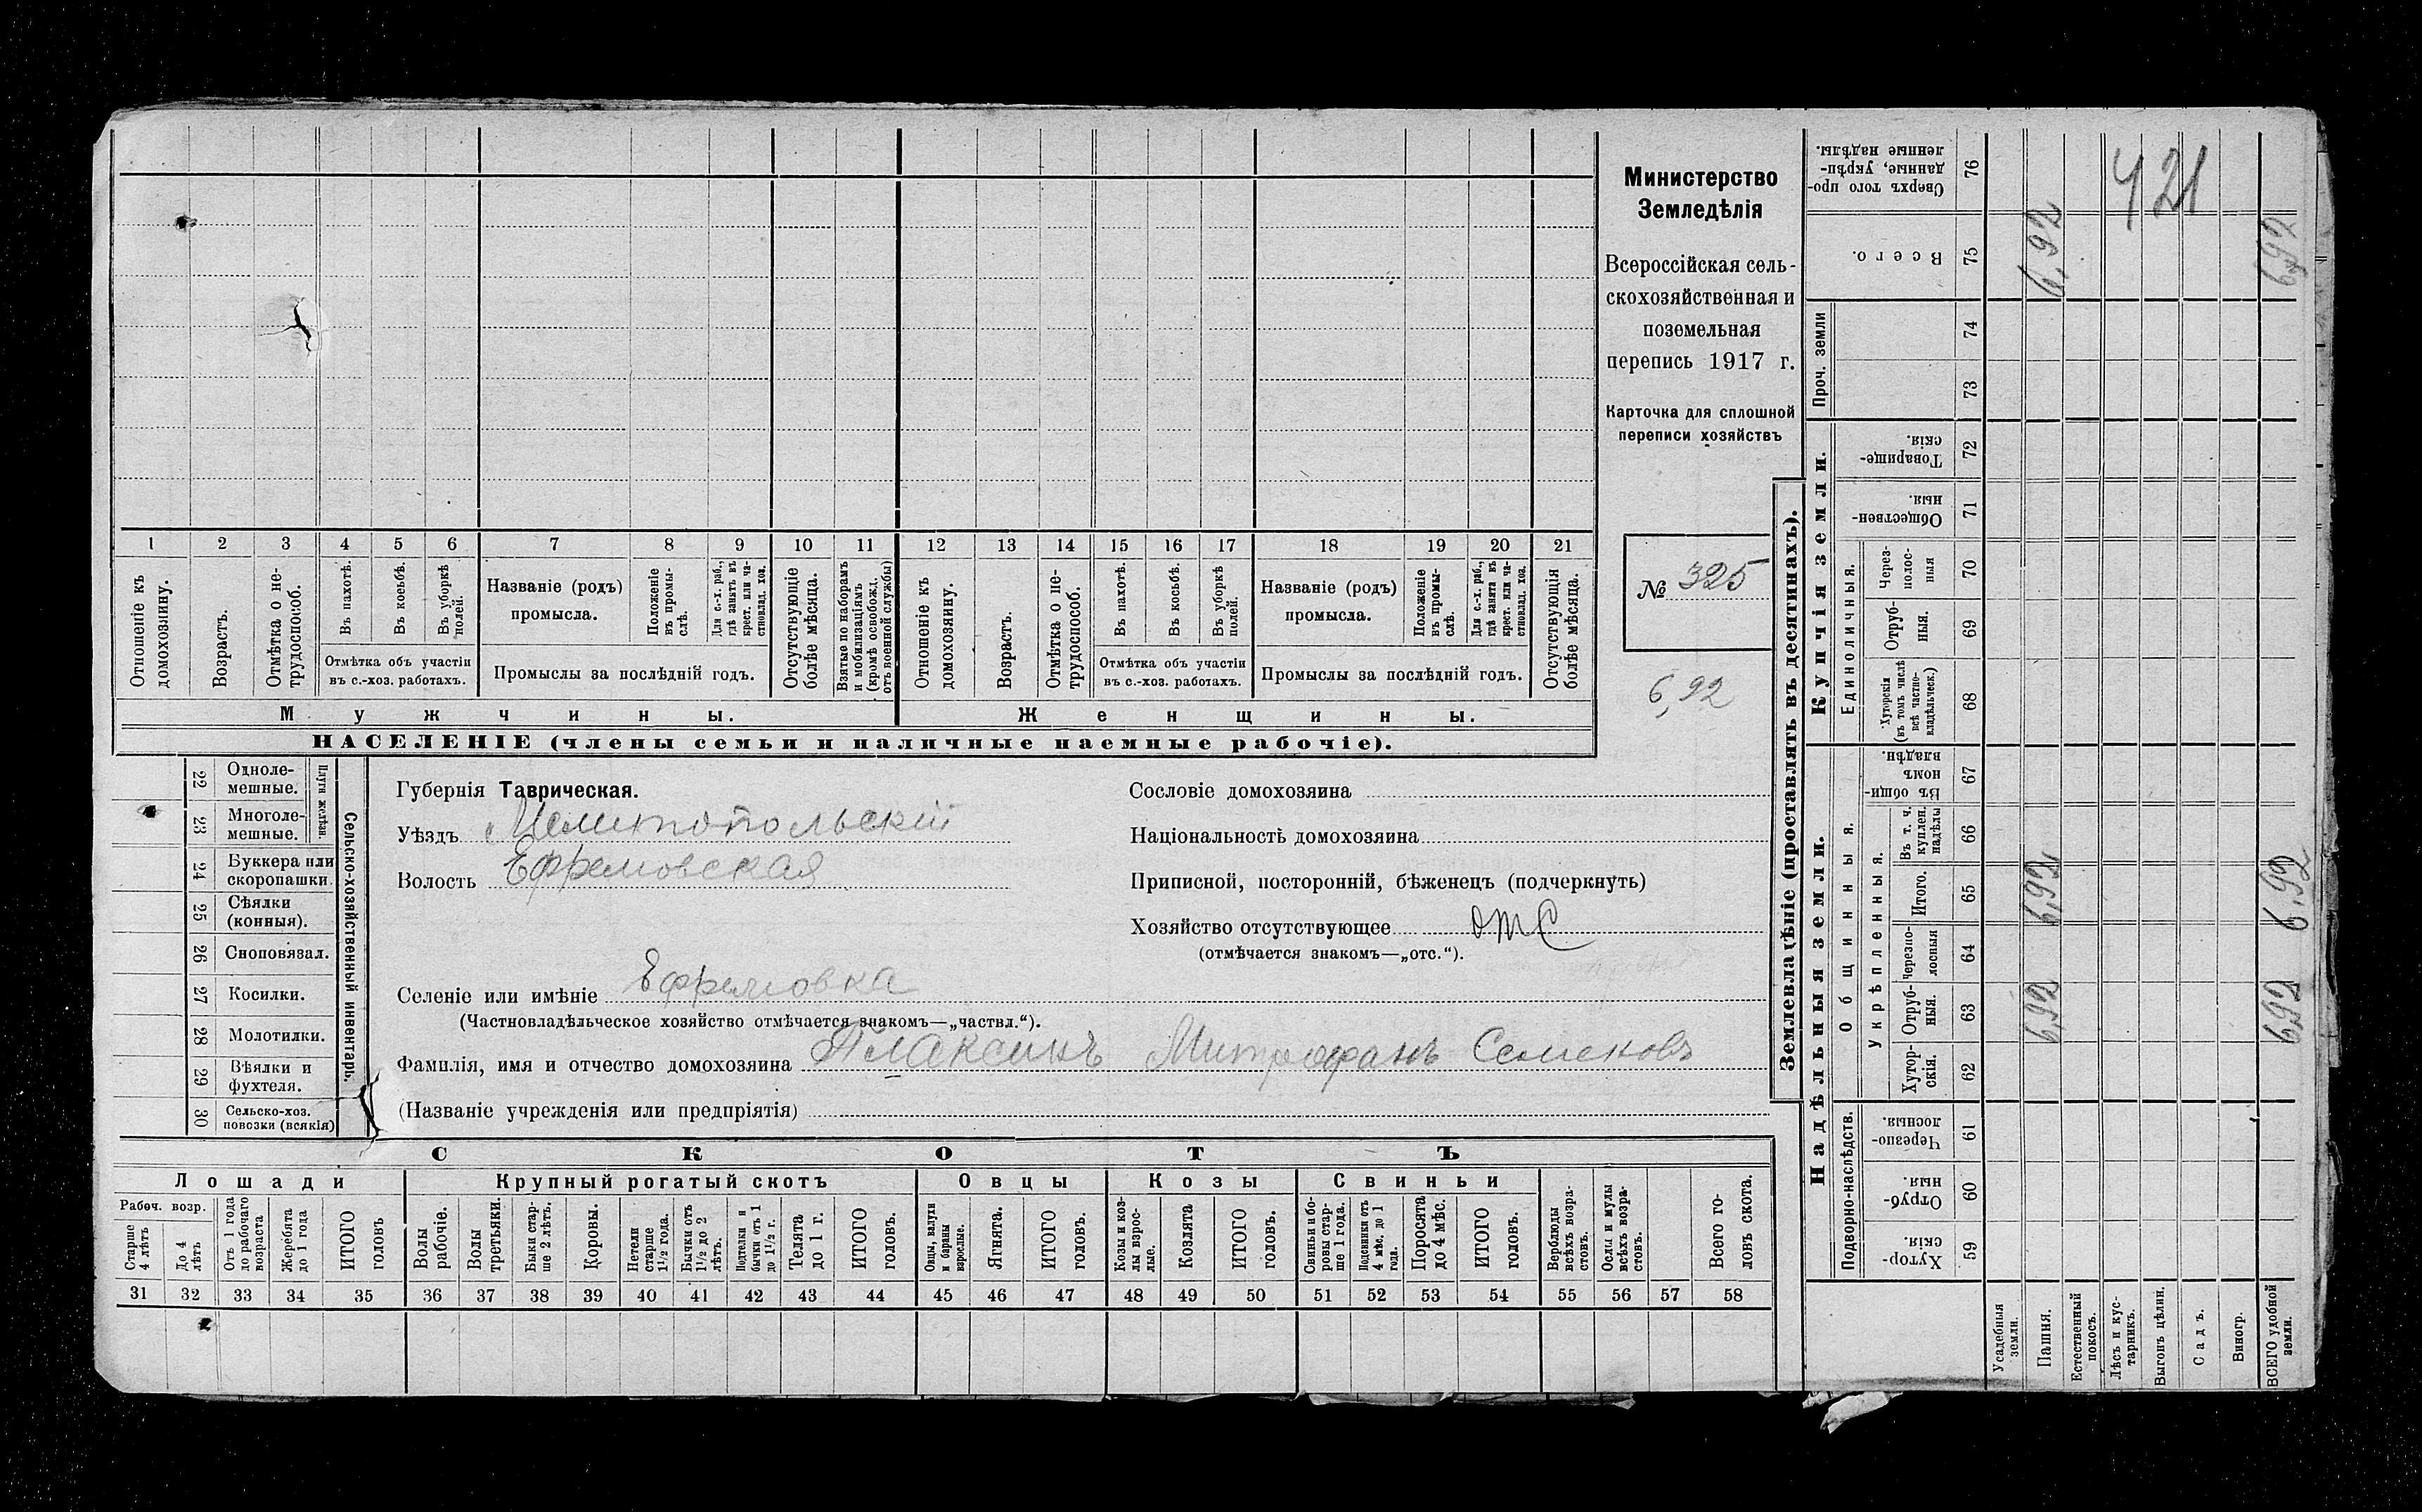 Министерство
Земледѣлія
Всероссійская сель-
скохозяйственная и
поземельная
перепись 1917 г.
Карточка для сплошной
переписи хозяйствъ
№ 325
6,92
1 2 3 4 5 6 7 8 9 10 11 12 13 14 15 16 17 18 19 20 21
Отношеніе къ домохозяину.
Возрастъ.
Отмѣтка о не-трудоспособ.
Въ пахотѣ.
Въ косьбѣ.
Въ уборкѣ полей.
Отмѣтка объ участіи
въ с.-хоз. работахъ.
Названіе (родъ)
промысла.
Положеніе въ промы-слѣ.
Для с.-х. раб., гдѣ занятъ въ крест. или ча-стновлад. хоз.
Промыслы за послѣдній годъ.
Отсутствующіе болѣе мѣсяца.
Взятые по наборамъ и мобилизаціямъ (кромѣ освобожд. отъ военной службы)
Отношеніе къ домохозяину.
Возрастъ.
Отмѣтка о не-трудоспособ.
Въ пахотѣ.
Въ косьбѣ.
Въ уборкѣ полей.
Отмѣтка объ участіи
въ с.-хоз. работахъ.
Названіе (родъ)
промысла.
Положеніе въ промы-слѣ.
Для с.-х. раб., гдѣ занята въ крест. или ча-стновлад. хоз.
Промыслы за послѣдній годъ.
Отсутствующія болѣе мѣсяца.
Мужчины.
Женщины.
НАСЕЛЕНІЕ (члены семьи и наличные наемные рабочіе).
22 Одноле-мешные.
23 Многоле-мешные.
Плуги желѣзн.
24 Буккера или скоропашки.
25 Сѣялки (конныя).
26 Сноповязал.
27 Косилки.
28 Молотилки.
29 Вѣялки и фухтеля.
30 Сельско-хоз. повозки (всякія)
Сельско-хозяйственный инвентарь.
Губернія Таврическая.
Уѣздъ Мелитопольскій
Волость Ефремовская
Селеніе или имѣніе Ефремовка
(Частновладѣльческое хозяйство отмѣчается знакомъ—„частвл.“).
Фамилія, имя и отчество домохозяина Плаксинъ Митрофанъ Семеновъ
(Названіе учрежденія или предпріятія)
Сословіе домохозяина
Національность домохозяина
Приписной, посторонній, бѣженецъ (подчеркнуть)
Хозяйство отсутствующее отс
(отмѣчается знакомъ—„отс.“).
СКОТЪ
Лошади
Крупный рогатый скотъ
Овцы
Козы
Свиньи
Рабоч. возр.
Старше 4 лѣтъ
До 4 лѣтъ
Отъ 1 года до рабочаго возраста
Жеребята до 1 года
ИТОГО головъ
Волы рабочіе.
Волы третьяки.
Быки стар-ше 2 лѣтъ.
Коровы.
Нетели старше 1½ года.
Бычки отъ 1½ до 2 лѣтъ.
Подтелки и бычки отъ 1 до 1½ г.
Телята до 1 г.
ИТОГО головъ.
Овцы, валухи и бараны взрослые.
Ягнята.
ИТОГО головъ.
Козы и коз-лы взрос-лые.
Козлята
ИТОГО головъ.
Свиньи и бо-ровы стар-ше 1 года.
Подсвинки отъ 4 мѣс. до 1 года.
Поросята до 4 мѣс.
ИТОГО головъ.
Верблюды всѣхъ возра-стовъ.
Ослы и мулы всѣхъ возра-стовъ.
Всего го-ловъ скота.
31 32 33 34 35 36 37 38 39 40 41 42 43 44 45 46 47 48 49 50 51 52 53 54 55 56 57 58
Землевладѣніе (проставлять въ десятинахъ).
Надѣльныя земли.
Купчія земли.
Проч. земли
Подворно-наслѣдств.
Общинныя.
Укрѣпленныя.
Единоличныя.
Хутор-скія. 59
Отруб-ныя. 60
Черезпо-лосныя. 61
Хутор-скія. 62
Отруб-ныя. 63
Черезпо-лосныя 64
Итого. 65
Въ т. ч. куплен. надѣлы 66
Въ общи-номъ владѣн. 67
Хуторскія (въ томъ числѣ всѣ частно-владѣльческ.) 68
Отруб-ныя. 69
Через-полос-ныя 70
Обществен-ныя. 71
Товарище-скія. 72
73
74
Всего. 75
Сверхъ того про-данные, укрѣп-ленные надѣлы. 76
Усадебныя земли.
Пашня.
6,92 6,92 6,92
Естественный покосъ.
Лѣсъ и кус-тарникъ.
Выгонъ цѣлин.
Садъ.
Виногр.
ВСЕГО удобной земли.
6,92 6,92 6,92
421